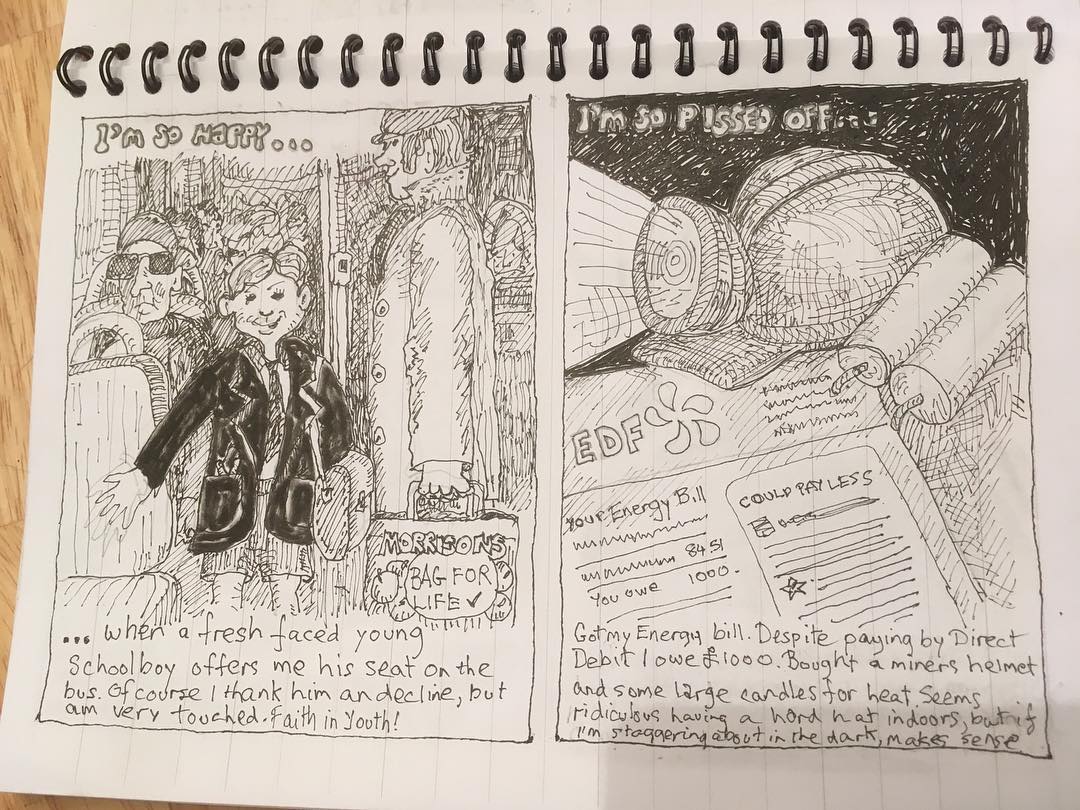 I'M SO HAPPY...
MORRISONS
BAG FOR
LIFE ✓
... when a fresh faced young
Schoolboy offers me his seat on the
bus. Of course I thank him an decline, but
am very touched. Faith in Youth!
I'M SO PISSED OFF...
EDF
Your Energy Bill
8451
You owe 1000.
COULD PAY LESS
Got my Energy bill. Despite paying by Direct
Debit I owe £1000. Bought a miners helmet
and some large candles for heat. Seems
ridiculous having a hard hat indoors, but if
I'm staggering about in the dark, makes sense